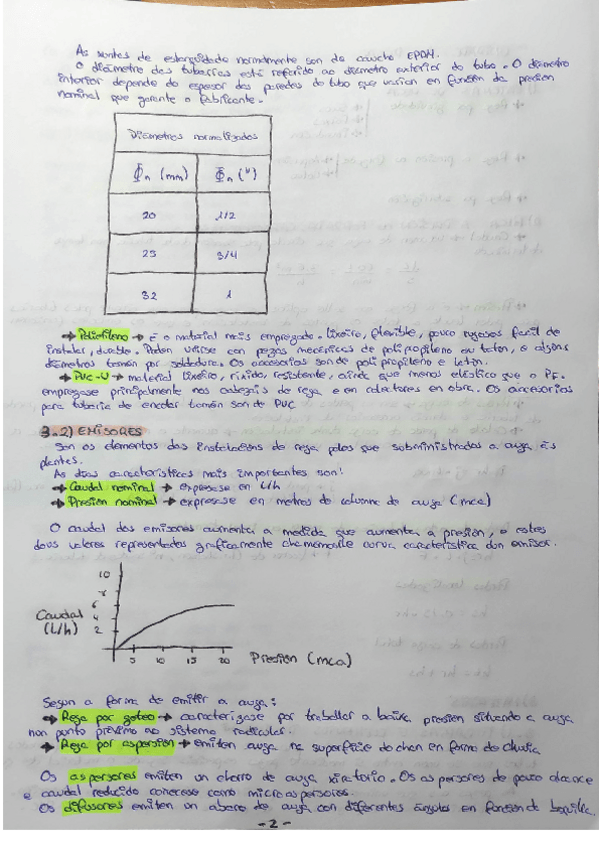 As xuntas de estanquidade normalmente son de caucho EPDM.
O diámetro das tuberías está referido ao diámetro exterior do tubo. O diámetro
interior depende do espesor das paredes do tubo que varían en función da presión
nominal que garante o fabricante.
Diámetros normalizados
Φn (mm) Φn (")
20 1/2
25 3/4
32 1
→ Polietileno → é o material máis empregado. Lixeiro, flexible, pouco rugoso, fácil de
instalar, durable. Poden unirse con pezas mecánicas de polipropileno ou latón, e algúns
diámetros tamén por soldadura. Os accesorios son de polipropileno e latón.
→ PVC-U → material lixeiro, ríxido, resistente, aínda que menos elástico que o PE.
emprégase principalmente nos cabezais de rega e en colectores en obra. Os accesorios
para tubería de encolar tamén son de PVC
3.2) EMISORES
Son os elementos das instalacións de rega polos que subministrados a auga ás
plantas.
As dúas características máis importantes son:
→ Caudal nominal → exprésase en L/h
→ Presión nominal → exprésase en metros de columna de auga (mca)
O caudal dos emisores aumenta a medida que aumenta a presión, e estes
dous valores representados graficamente chámanselle curva característica dun emisor.
10
6
4
2
Caudal
(L/h)
5 10 15 20
Presión (mca)
Segun a forma de emitir a auga:
→ Rega por goteo → caracterízase por traballar a baixa presión situando a auga
nun punto próximo ao sistema radicular.
→ Rega por aspersión → emiten auga na superficie do chan en forma de chuvia
Os aspersores emiten un chorro de auga xiratorio. Os aspersores de pouco alcance
e caudal reducido coñécese como microaspersores.
Os difusores emiten un abano de auga con diferentes ángulos en función da boquilla.
-2-